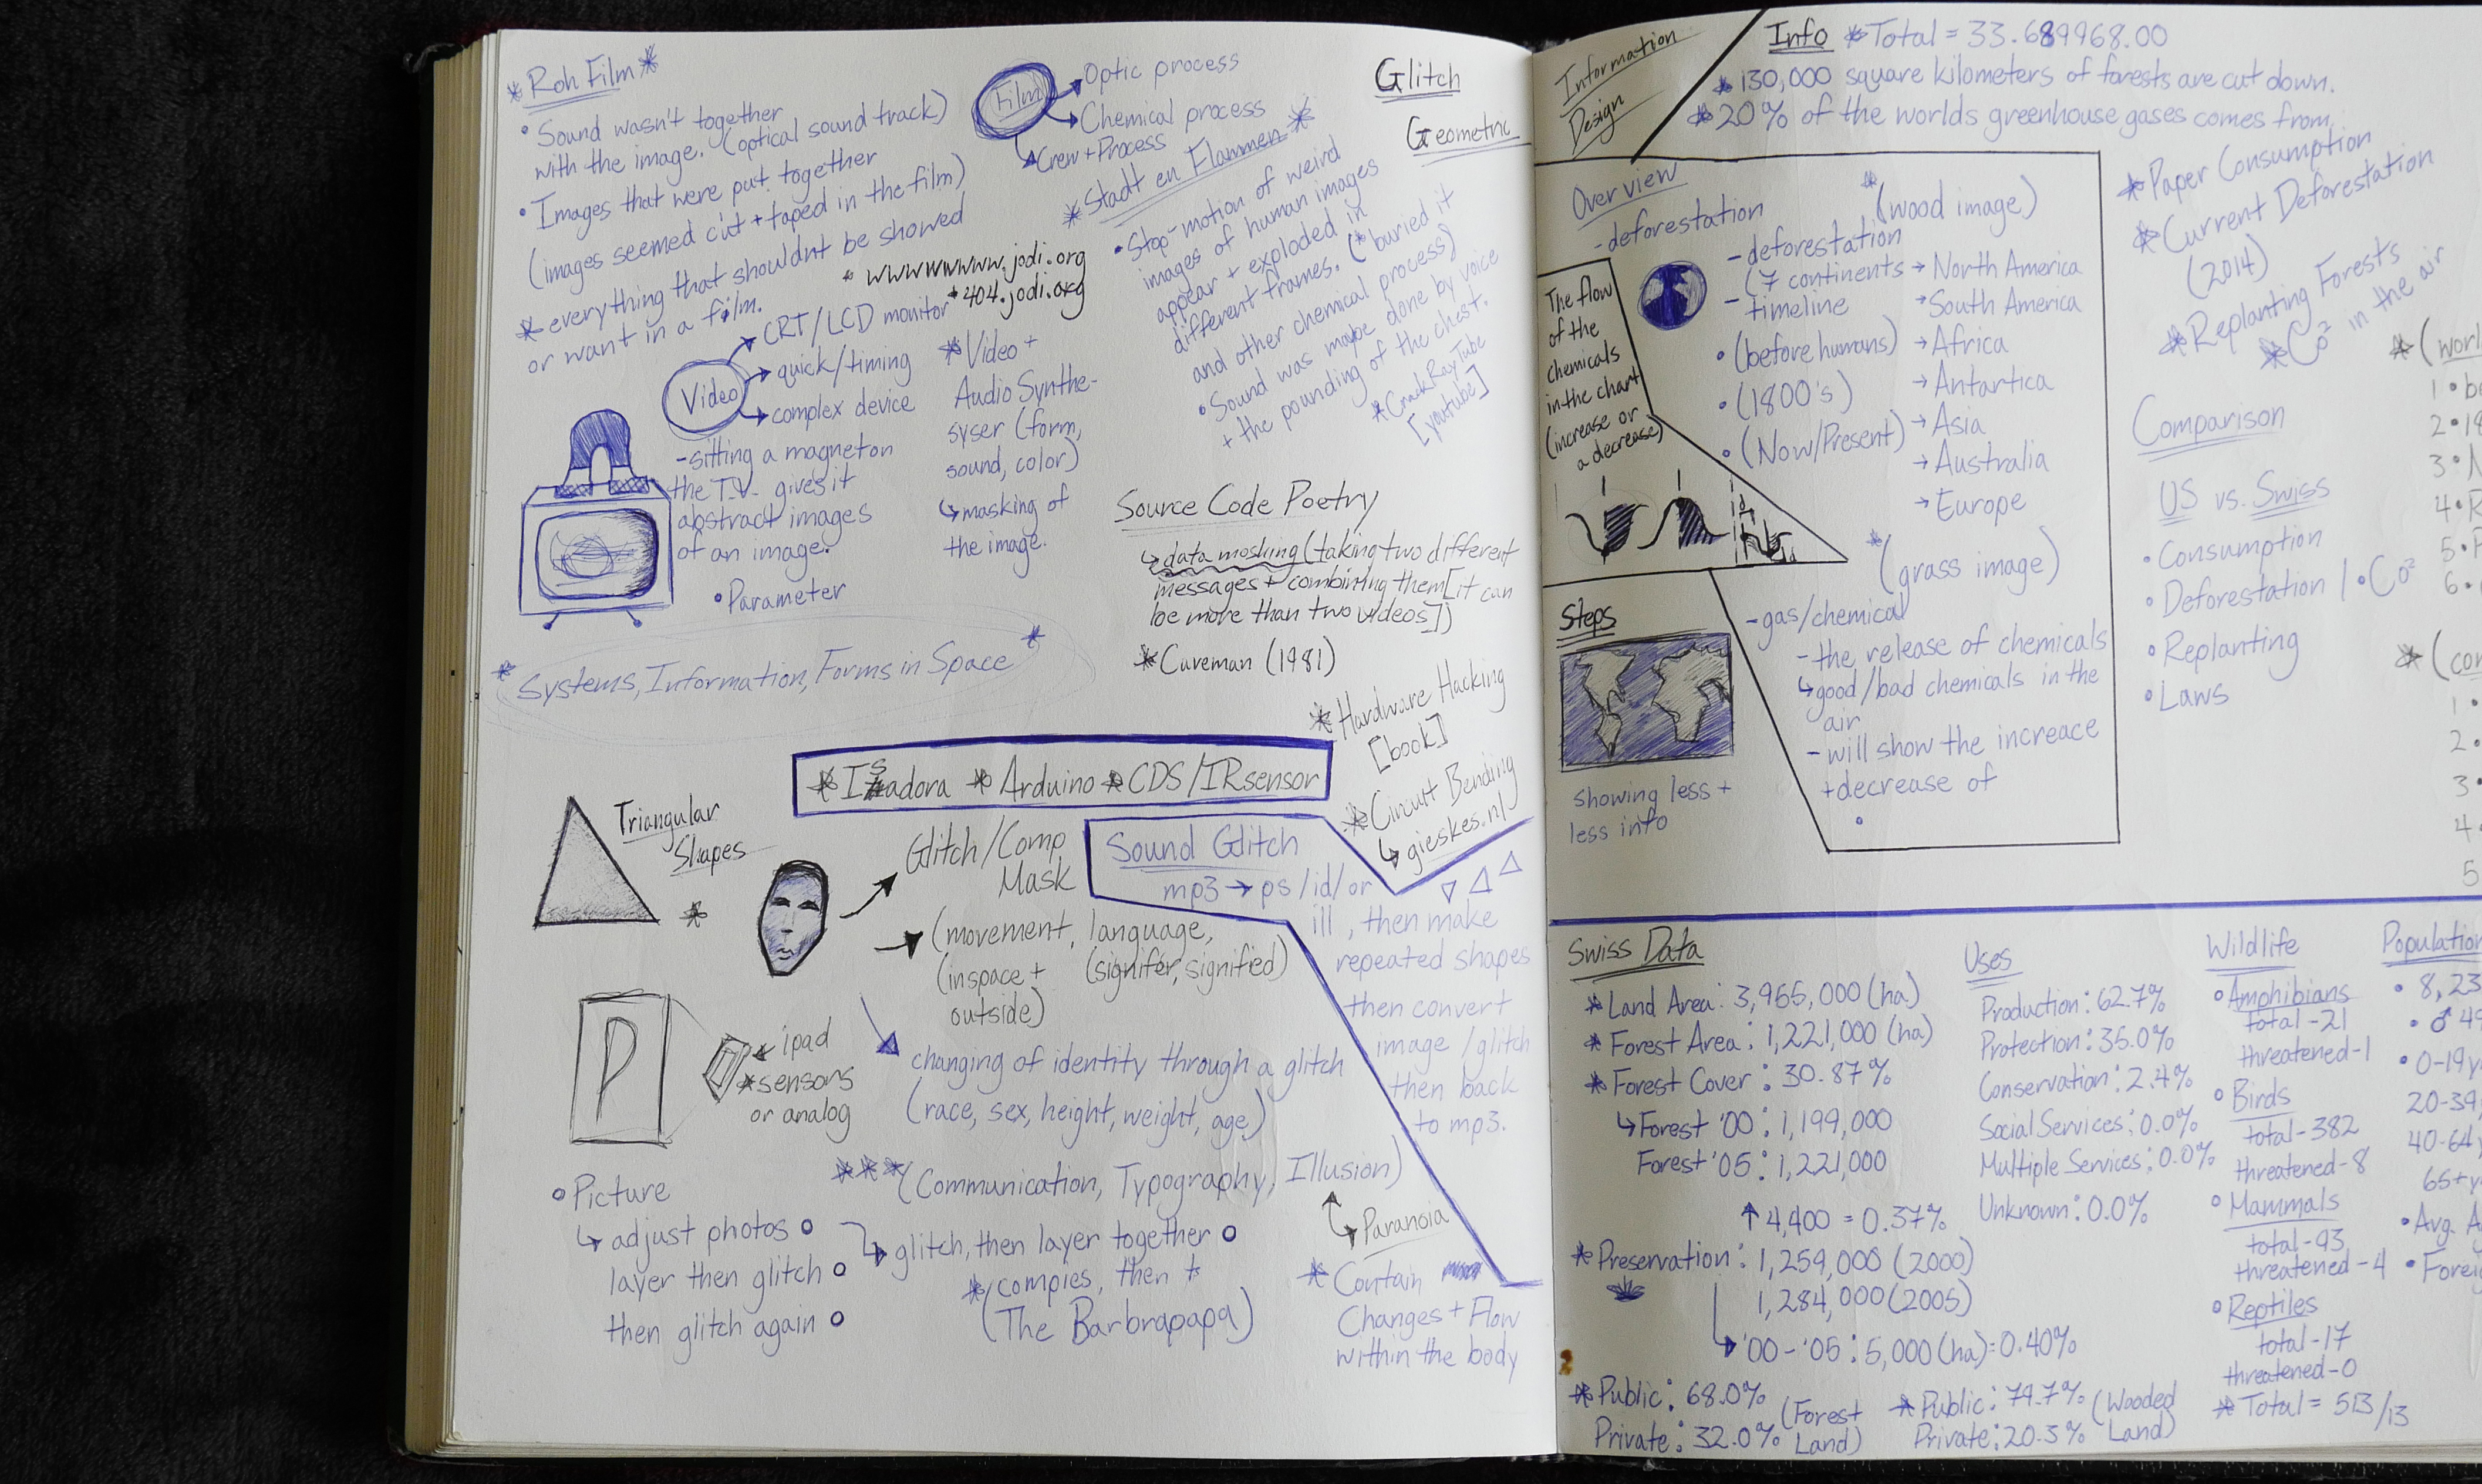 *Roh Film*
• Sound wasn't together
with the image. (optical sound track)
• Images that were put together
(images seemed cut + taped in the film)
* everything that shouldnt be showed
or want in a film.
Film
Optic process
Chemical process
Crew + Process
*Stadt en Flammen*
• Stop-motion of weird
images of human images
appear + exploded in
different frames. (*buried it
and other chemical process)
• Sound was maybe done by voice
+ the pounding of the chest.
*CrackRayTube
[youtube]
Glitch
Geometric
* wwwwwwww.jodi.org
* 404.jodi.org
Video
CRT/LCD monitor
quick/timing
complex device
- sitting a magneton
the T.V. gives it
abstract images
of an image.
• Parameter
* Video +
Audio Synthe-
syser (form,
sound, color)
↳ masking of
the image.
Source Code Poetry
↳ data moshing (taking two different
messages + combining them [it can
be more than two videos])
* Caveman (1981)
* Systems, Information, Forms in Space *
* Hardware Hacking
[book]
* Circuit Bending
↳ gieskes.nl
* Isadora * Arduino * CDS/IRsensor
Triangular
Shapes
*
Glitch/Comp
Mask
(movement, language,
(inspace + (signifer, signified)
outside)
changing of identity through a glitch
(race, sex, height, weight, age)
Sound Glitch
mp3 → ps/id/or
ill, then make
repeated shapes
then convert
image/glitch
then back
to mp3.
P
* ipad
* sensors
or analog
*** (Communication, Typography, Illusion)
↳ Paranoia
• Picture
↳ adjust photos o
layer then glitch o
then glitch again o
↳ glitch, then layer together o
* (compies, then +
(The Barbrapapa)
* Contain
Changes + Flow
within the body
Information
Design
Info *Total = 33.689968.00
* 130,000 square kilometers of forests are cut down.
* 20% of the worlds greenhouse gases comes from
Overview
- deforestation
* (wood image)
- deforestation
(7 continents → North America
- timeline → South America
• (before humans) → Africa
• (1800's) → Antartica
→ Asia
• (Now/Present) → Australia
→ Europe
The flow
of the
chemicals
in the chart
(increase or
a decrease)
* (grass image)
- gas/chemical
- the release of chemicals
↳ good/bad chemicals in the
air
- will show the increace
+ decrease of
•
Steps
showing less +
less info
* Paper Consumption
* Current Deforestation
(2014)
* Replanting Forests
* Co² in the air
Comparison
US vs. Swiss
• Consumption
• Deforestation / • Co²
• Replanting
• Laws
1 •
2 •
3 •
4 •
5 •
6 •
1 •
2 •
3 •
4 •
5
Swiss Data
* Land Area: 3,955,000 (ha)
* Forest Area: 1,221,000 (ha)
* Forest Cover: 30.87%
↳ Forest '00: 1,199,000
Forest '05: 1,221,000
↑ 4,400 = 0.37%
* Preservation: 1,259,000 (2000)
1,284,000 (2005)
↳ '00-'05: 5,000 (ha) = 0.40%
* Public: 68.0% (Forest
Private: 32.0% Land)
* Public: 79.7% (Wooded
Private: 20.3% Land)
Uses
Production: 62.7%
Protection: 35.0%
Conservation: 2.4%
Social Services: 0.0%
Multiple Services: 0.0%
Unknown: 0.0%
Wildlife
• Amphibians
total-21
threatened-1
• Birds
total-382
threatened-8
• Mammals
total-93
threatened-4
• Reptiles
total-17
threatened-0
* Total = 513/13
Population
• 8,23
• ♂ 49
• 0-19y
20-39
40-64y
65+y
• Avg. A
• Foreig